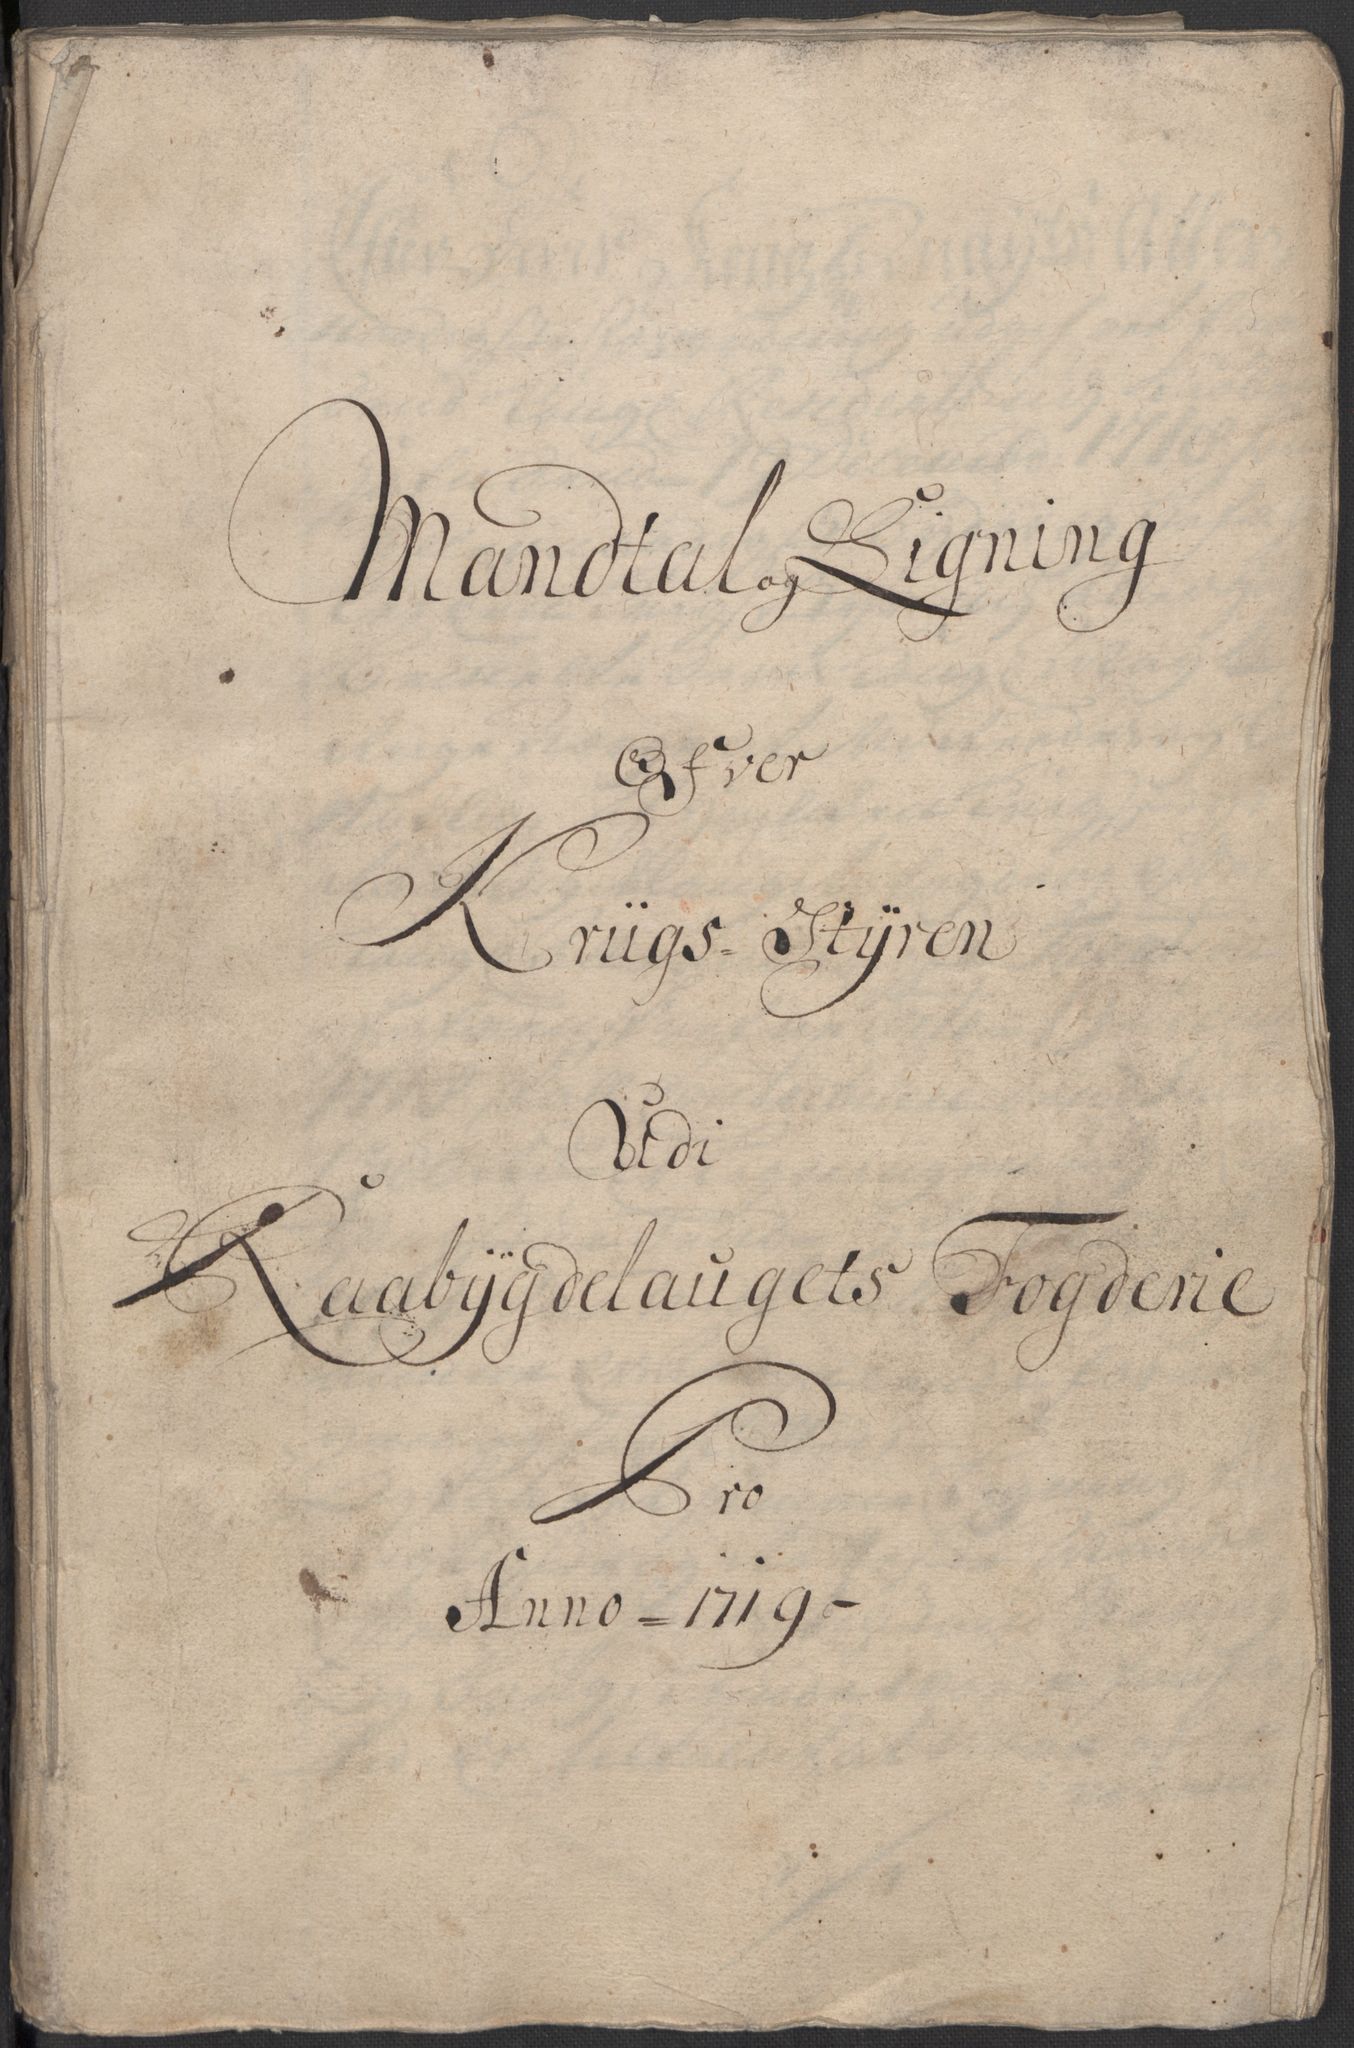 Mandtal og Ligning
Ofver
Kriigs= Styren
Udi
Raabÿgdelaugets Fogderie
Pro
Anno = 1719 -